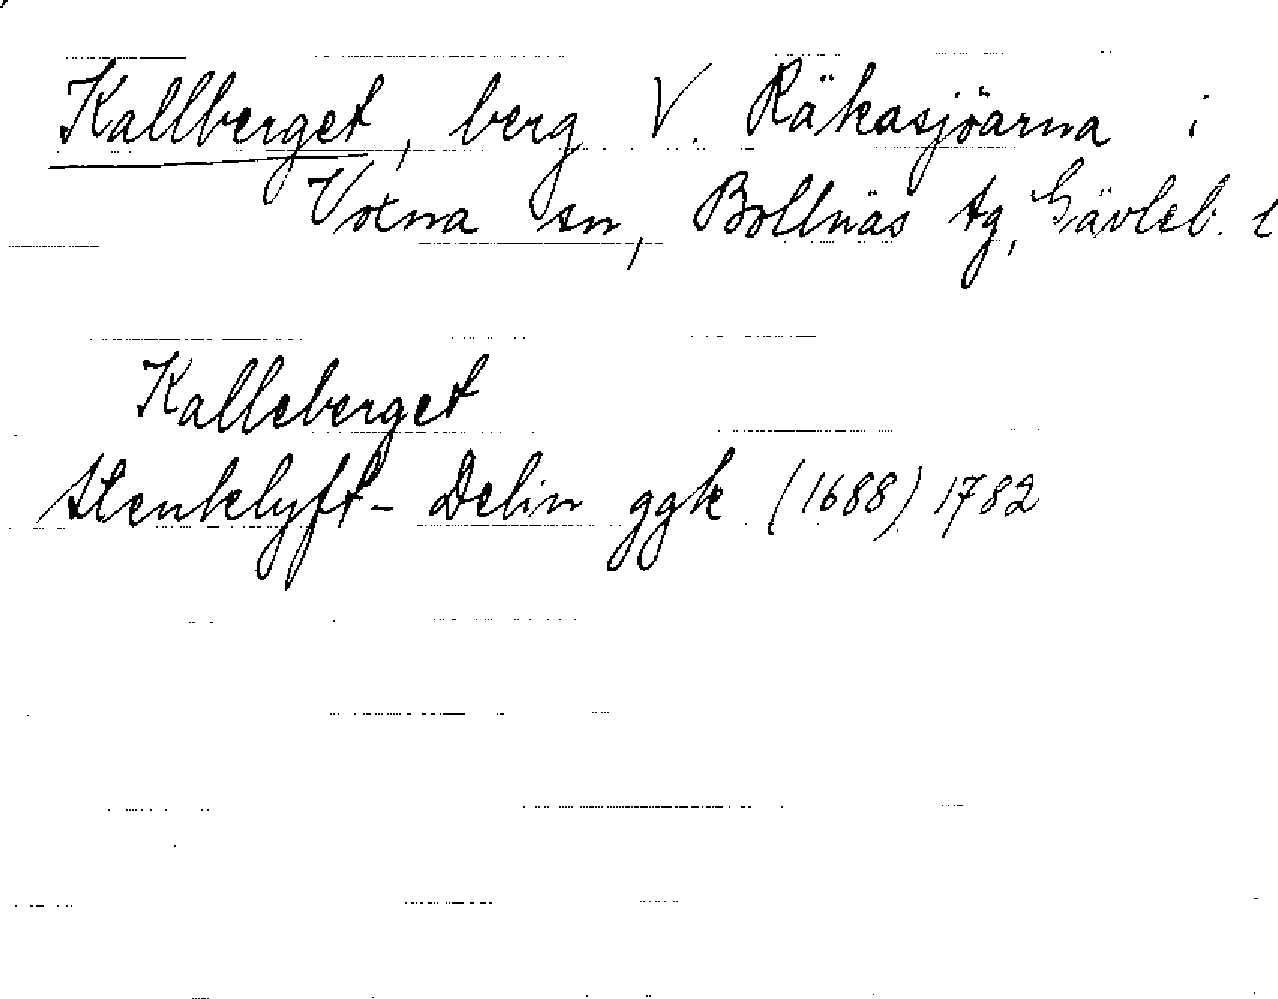 Kallberget, berg V. Räkasjöarna i
Voxna sn, Bollnäs tg, Gävleb. l
Kalleberget
Stenklyft- Delin ggk (1688) 1782